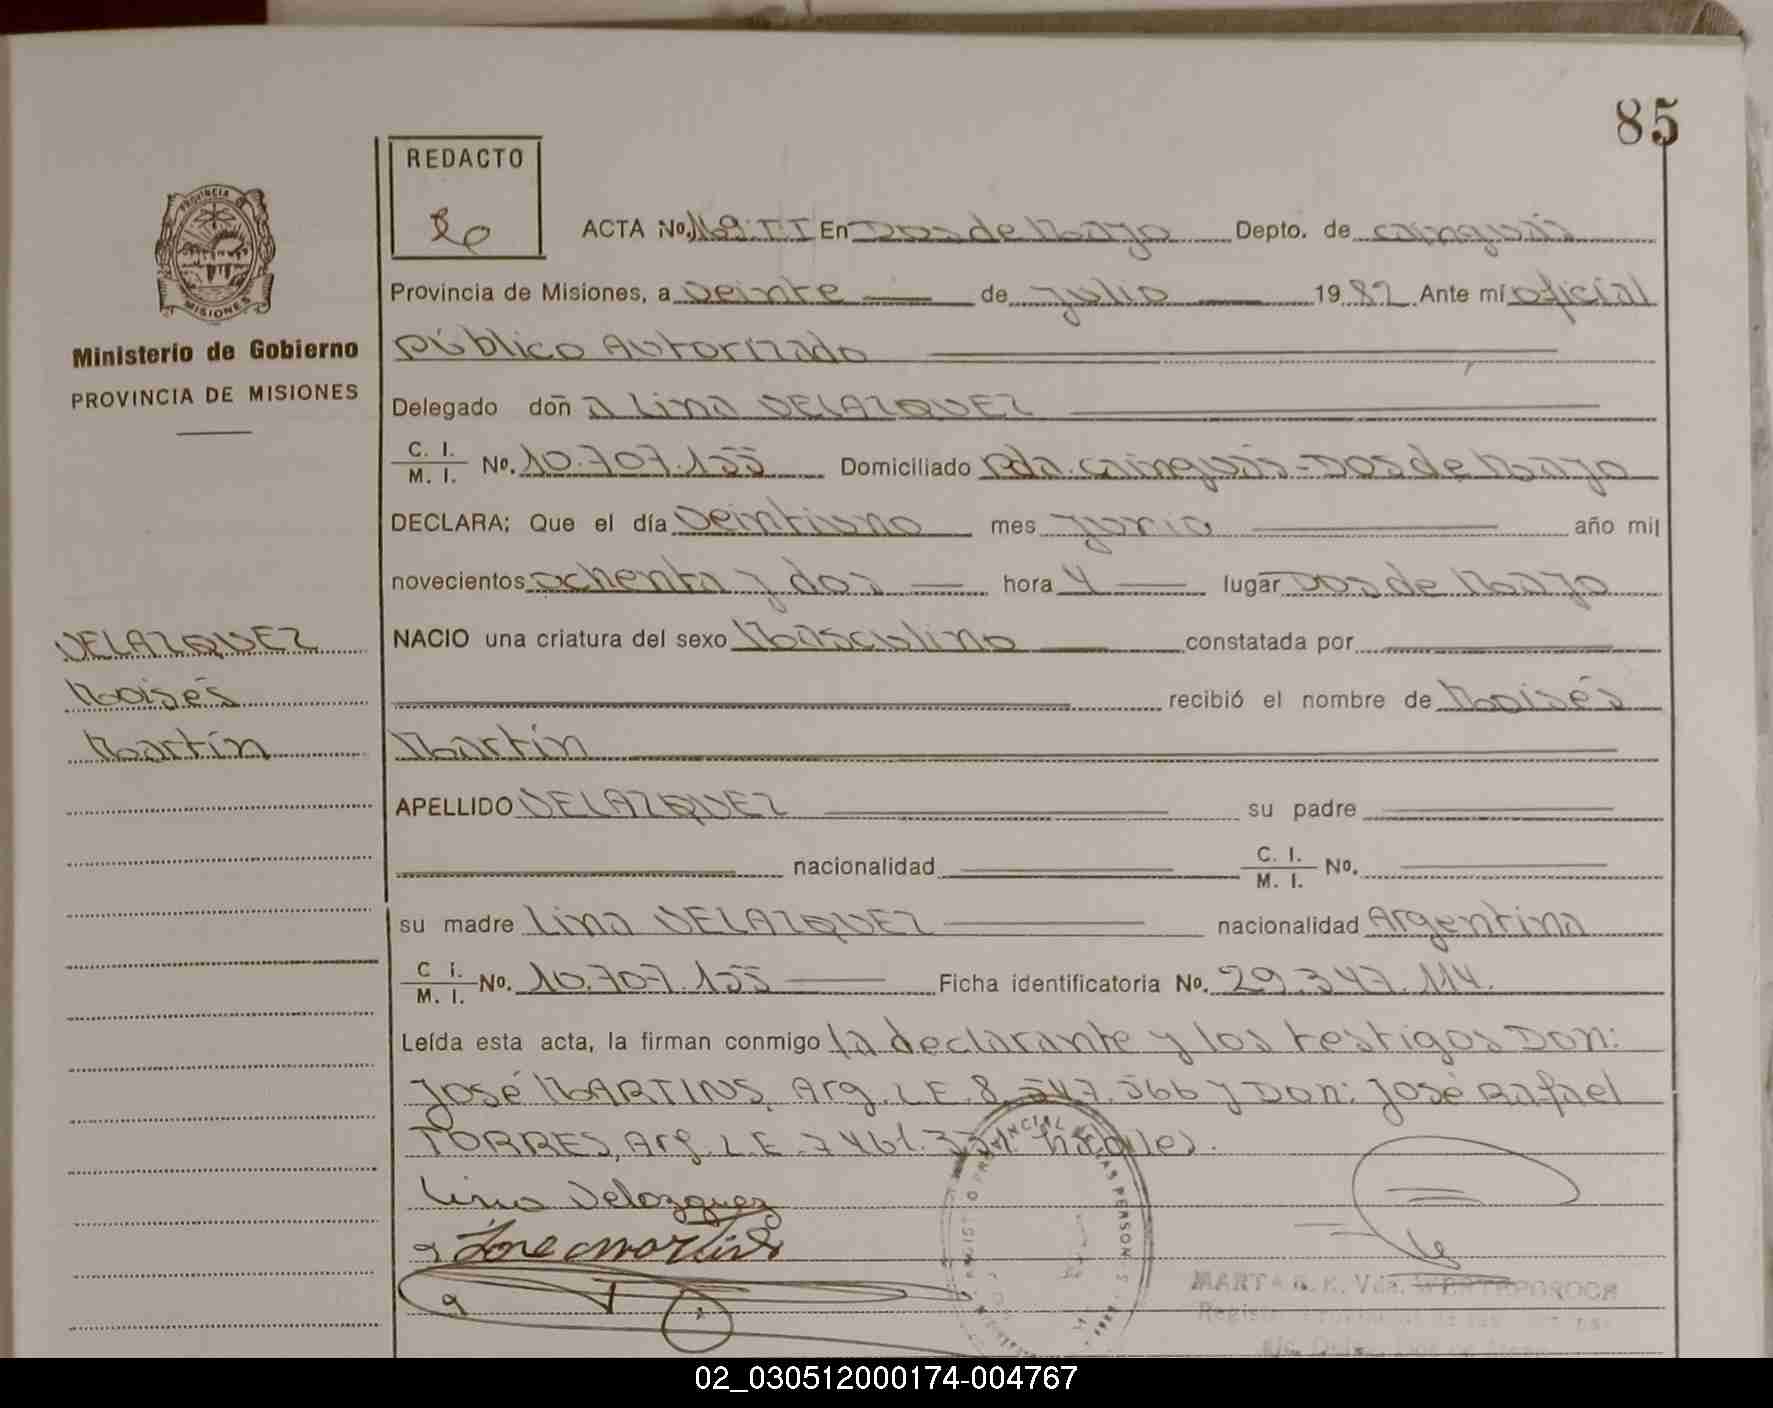 85
REDACTO
ACTA No. 169. TT En Dos de Mayo Depto. de cainguás
PROVINCIA MISIONES
Provincia de Misiones, a veinte de julio 1982 Ante mí oficial
Ministerio de Gobierno
PROVINCIA DE MISIONES
público Autorizado
Delegado doñ a Lina VELAZQUEZ
C. I. M. I. No. 10.707.155 Domiciliado Pda. cainguás - Dos de Mayo
DECLARA; Que el día veintiuno mes junio año mil
novecientos ochenta y dos hora 4 lugar Dos de Mayo
VELAZQUEZ
NACIO una criatura del sexo Masculino constatada por
Moisés
recibió el nombre de Moisés
Martín
Martín
APELLIDO VELAZQUEZ su padre
nacionalidad C. I. M. I. No.
su madre Lina VELAZQUEZ nacionalidad Argentina
C I. M. I. No. 10.707.155 Ficha identificatoria No. 29.347.114.
Leída esta acta, la firman conmigo la declarante y los testigos Don:
José MARTINS, Arg. L.E. 8.547.566 y Don: José Rafael
TORRES, Arg. L.E. 7.461.331 hábiles.
Lina Velazquez
Jose martins
MARTA R. K. Vda.
02_030512000174-004767